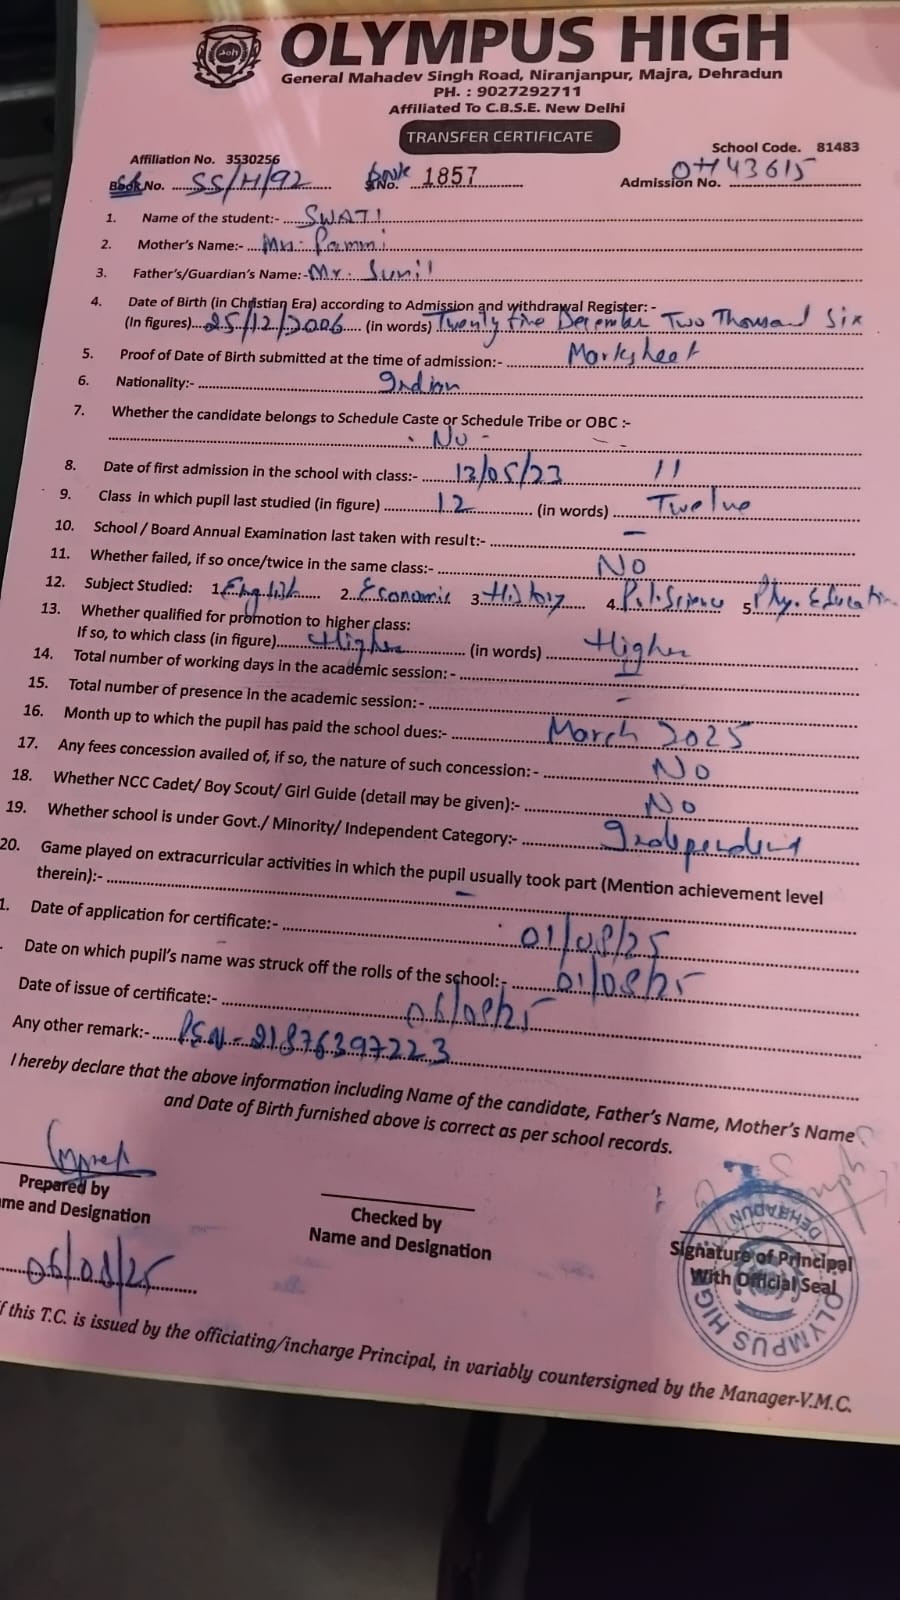 OLYMPUS HIGH
General Mahadev Singh Road, Niranjanpur, Majra, Dehradun
PH. : 9027292711
Affiliated To C.B.S.E. New Delhi
TRANSFER CERTIFICATE
Affiliation No. 3530256 School Code. 81483
No. SS/H/92 No. 1857 Admission No. OH43615
1. Name of the student:- SWATI
2. Mother's Name:- Mrs. Pammi
3. Father's/Guardian's Name:- Mr. Sunil
4. Date of Birth (in Christian Era) according to Admission and withdrawal Register: -
(In figures) 25/12/2006 (in words) Twenty five December Two Thousand Six
5. Proof of Date of Birth submitted at the time of admission:- Marksheet
6. Nationality:- Indian
7. Whether the candidate belongs to Schedule Caste or Schedule Tribe or OBC :-
- No -
8. Date of first admission in the school with class:- 13/05/23 11
9. Class in which pupil last studied (in figure) 12 (in words) Twelve
10. School / Board Annual Examination last taken with result:- –
11. Whether failed, if so once/twice in the same class:- NO
12. Subject Studied: 1. English 2. Economic 3. History 4. Pol. Science 5. Phy. Education
13. Whether qualified for promotion to higher class:
If so, to which class (in figure) Higher (in words) Higher
14. Total number of working days in the academic session: - –
15. Total number of presence in the academic session:- –
16. Month up to which the pupil has paid the school dues:- March 2025
17. Any fees concession availed of, if so, the nature of such concession: - No
18. Whether NCC Cadet/ Boy Scout/ Girl Guide (detail may be given):- No
19. Whether school is under Govt./ Minority/ Independent Category:- Independent
20. Game played on extracurricular activities in which the pupil usually took part (Mention achievement level
therein):- –
1. Date of application for certificate:- 01/08/25
. Date on which pupil's name was struck off the rolls of the school:- 01/08/25
Date of issue of certificate:- 06/08/25
Any other remark:- PEN - 21876397223
I hereby declare that the above information including Name of the candidate, Father's Name, Mother's Name
and Date of Birth furnished above is correct as per school records.
Prepared by
me and Designation
06/08/25
Checked by
Name and Designation
Signature of Principal
With Official Seal
OLYMPUS HIGH DEHRADUN
f this T.C. is issued by the officiating/incharge Principal, in variably countersigned by the Manager-V.M.C.